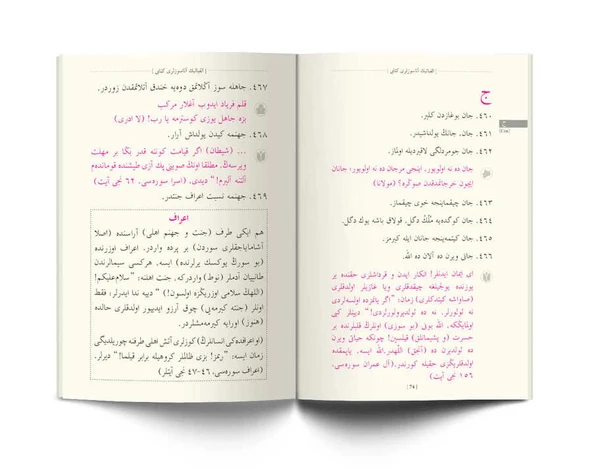 [ الفبالیك آتاسوزلری كتابی ]
ج
ج
[Cim]
٤٦٠. جان بوغازدن كلیر.
٤٦١. جان، جانڭ یولداشیدر.
٤٦٢. جان جومردلگی لاقیردیله اولماز.
جان ده نه اولویور، اینجی مرجان ده نه اولویور؛ جانان
ایچون خرجانمدقدن صوڭره؟ (مولانا)
٤٦٣. جان چیقماینجه خوی چیقماز.
٤٦٤. جان كوگده‌یه مُلْك دگل، قولاق باشه یوك دگل.
٤٦٥. جان كیتمه‌ینجه جانان ایله كیرمز.
٤٦٦. جانی ویرن ده آلان ده الله.
ای ایمان ایدنلر! انكار ایدن و قرداشلری حقنده یر
یوزنده یولجیلغه چیقدقلری ویا غازیلر اولدقلری
(صاواشه كیتدكلری) زمان؛ "اگر یانمزده اولسه‌لردی
نه ئولورلر، نه ده ئولدیرولورلردی!" دیینلر كبی
اولمایڭكه، الله بونی (بو سوزی) اونلرڭ قلبلرنده بر
حسرت (و پشیمانلق) قیلسین! چونكه حیاتی ویرن
ده ئولدیرن ده (آنجق) اللّٰهدر. الله ایسه، یاپمقده
اولدقلریڭزی حقیله كورندر. (آل عمران سوره‌سی،
١٥٦ نجی آیت)
[ 74 ]
[ الفبالیك آتاسوزلری كتابی ]
٤٦٧. جاهله سوز آڭلاتمق دوه‌یه خندق آتلاتمقدن زوردر.
قلم فریاد ایدوب آغلار مركب
بزه جاهل یوزی كوسترمه یا رب! (لا ادری)
٤٦٨. جهنمه كیدن یولداش آرار.
... (شیطان) اگر قیامت كوننه قدر بڭا بر مهلت
ویرسه‌ڭ، مطلقا اونڭ صویینی پك آزی طیشنده قوماندەم
آلتنه آلیرم! " دیدی. (اسرا سوره‌سی، ٦٢ نجی آیت)
٤٦٩. جهنمه نسبت اعراف جنتدر.
اعراف
هم ایكی طرف (جنت و جهنم اهلی) آراسنده (اصلا
آشامایاجقلری سوردن) بر پرده واردر. اعراف اوزرنده
(بو سورڭ یوكسك یرلرنده) ایسه، هركسی سیمالرندن
طانییان آدملر (نوط) واردركه، جنت اهلنه: "سلام علیكم!
(اللهڭ سلامی اوزریڭزه اولسون!)" دییه ندا ایدرلر؛ فقط
اونلر (جنته كیرمه‌یی) چوق آرزو ایدییور اولدقلری حالده
(هنوز) اورایه كیرمه‌مشلردر.
(واعرافده‌كی انسانلرڭ) كوزلری آتش اهلی طرفنه چوریلدیگی
زمان ایسه: "ربّمز! بزی ظالملر كروهیله برابر قیلما!" دیرلر.
(اعراف سوره‌سی، ٤٦-٤٧ نجی آیتلر)